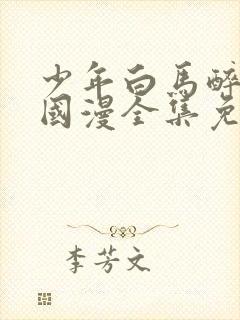 少年白馬醉
國漫全集免
李芳文